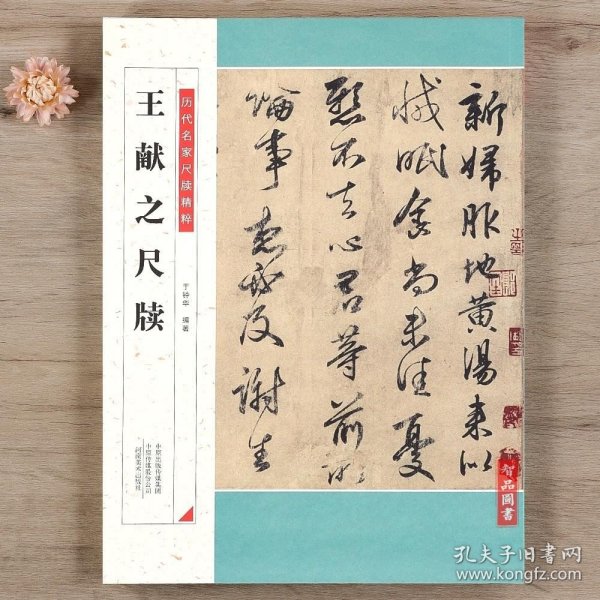 历代名家尺牍精粹
王献之尺牍
于钟华 编著
中原出版传媒集团
中原传媒股份公司
河南美术出版社
新婦服地黄湯来似
減眠食尚未佳憂
懸不去心君等前所
論事想必及謝生
智品圖書
孔夫子旧書网
www.kongfz.com